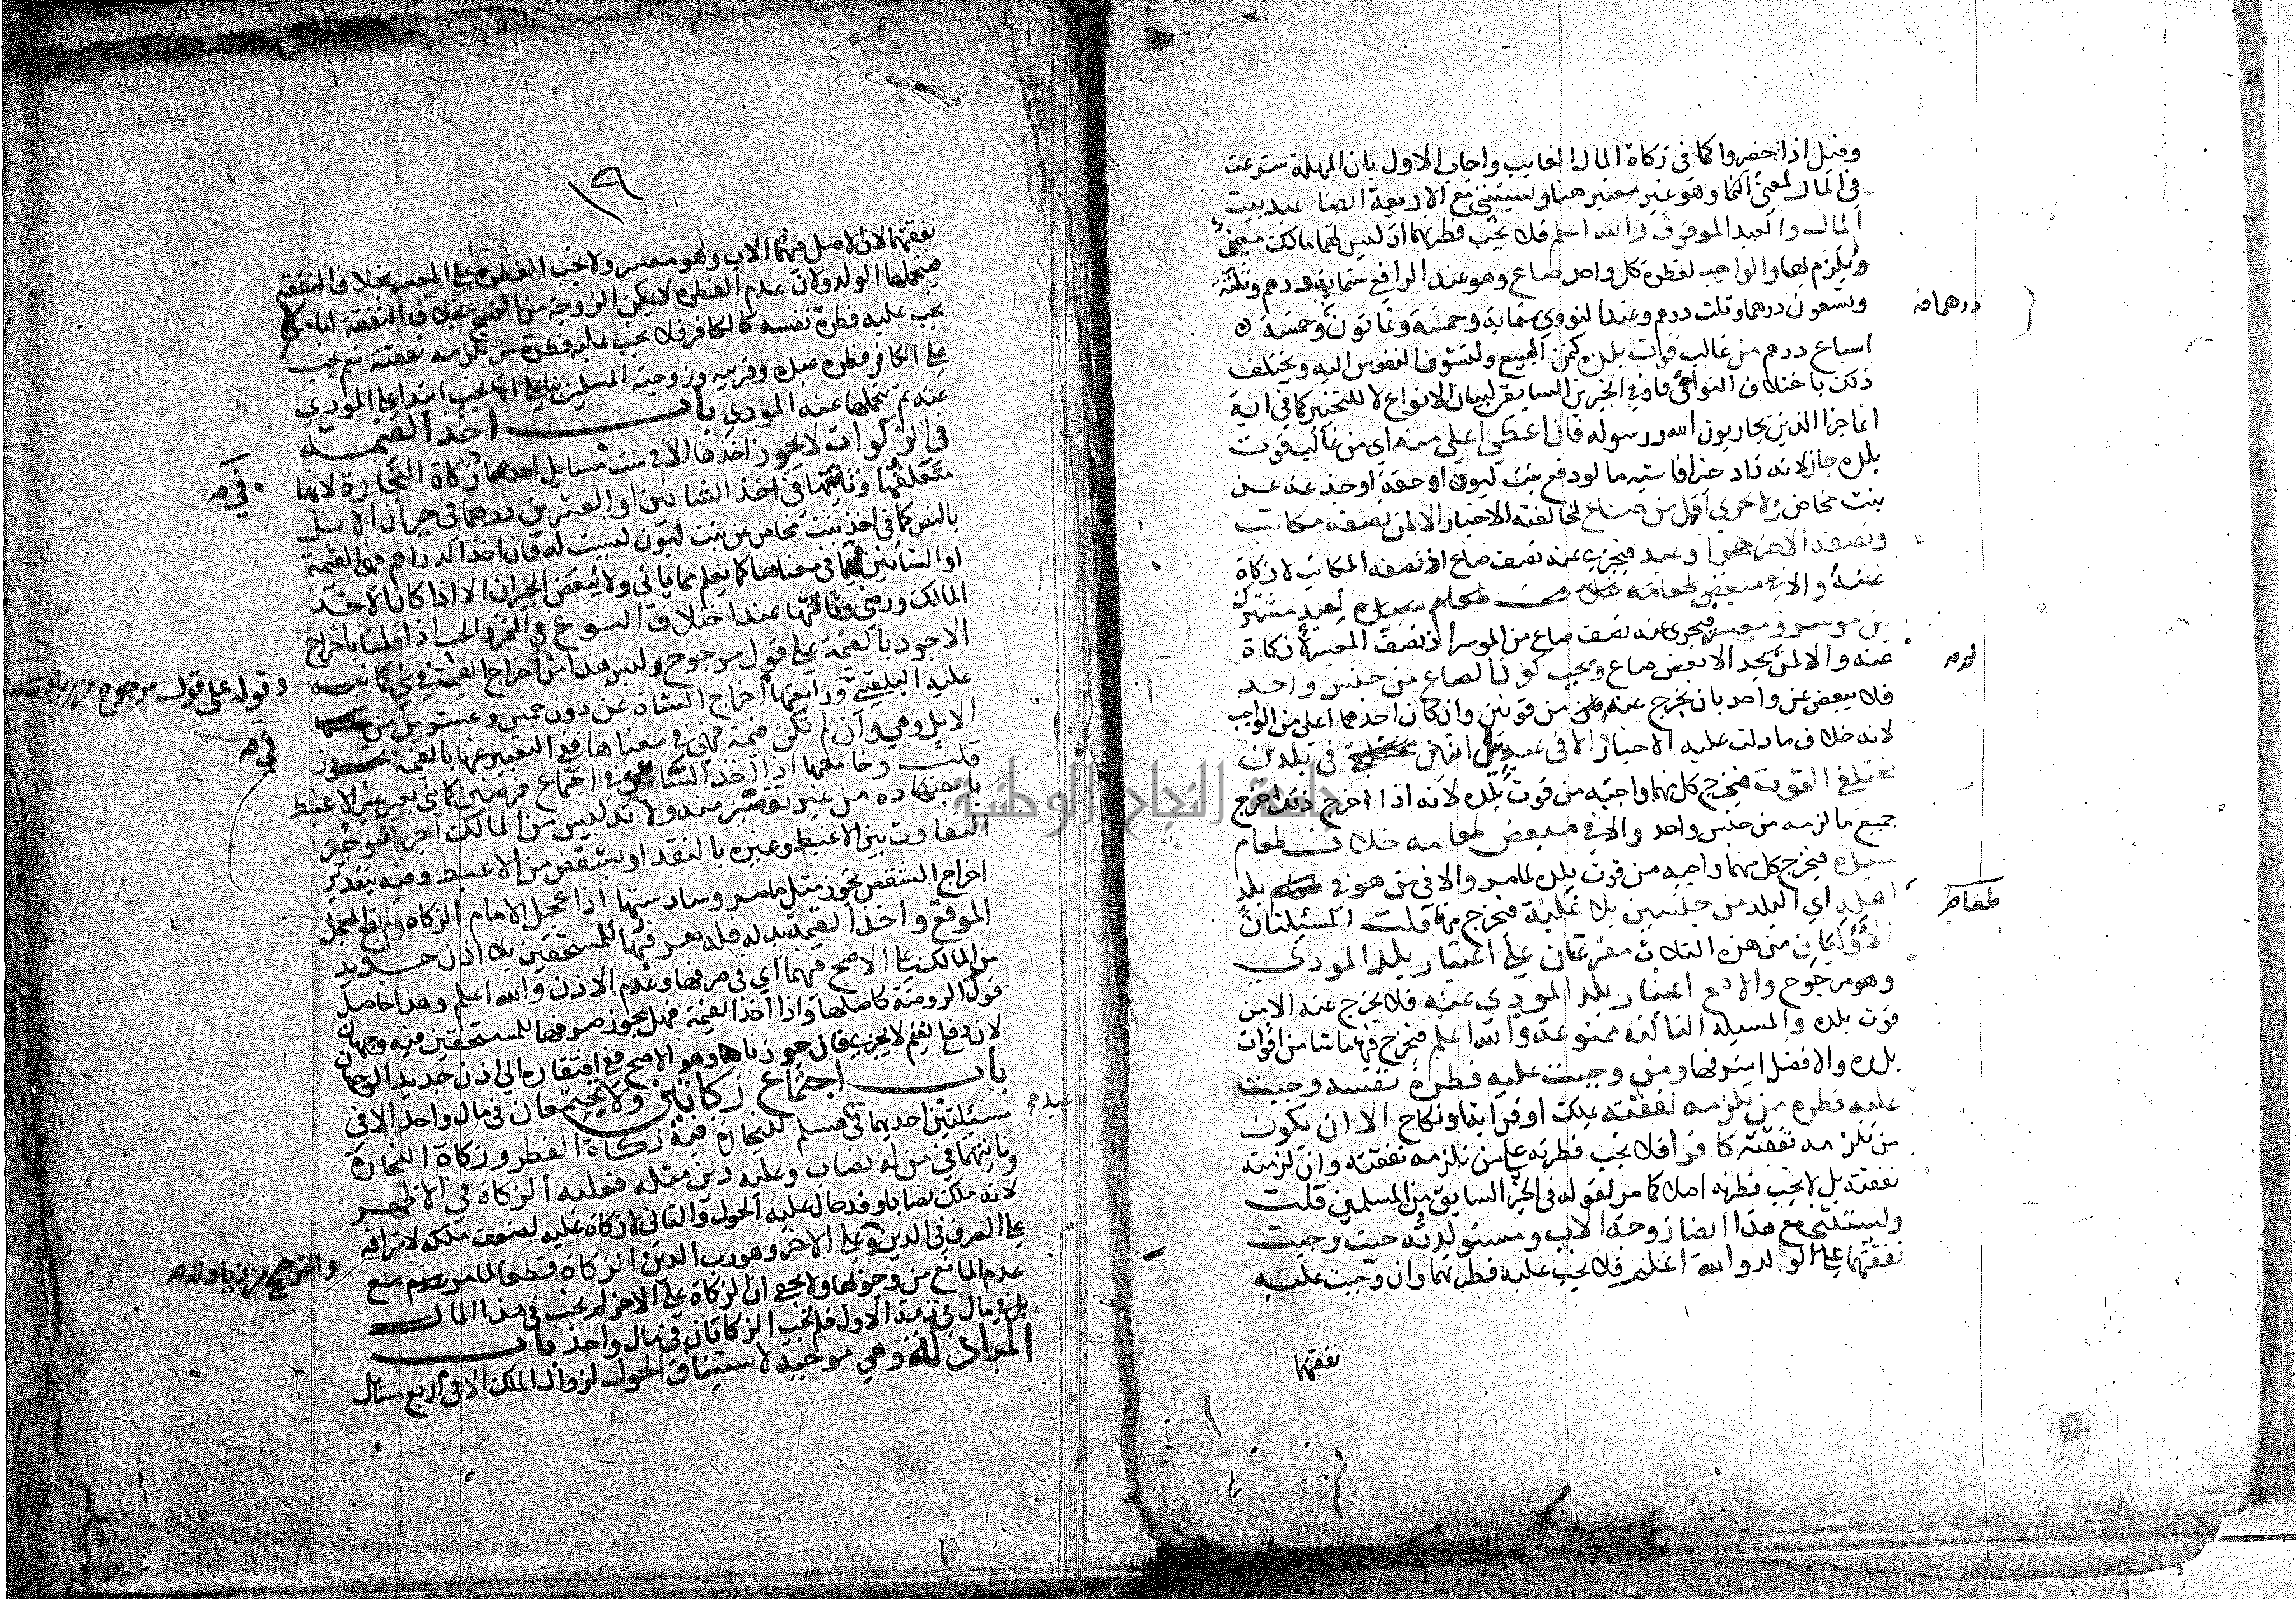 وقيل اذا حضروا كما في زكاة المال الغايب واجاب الاول بان المهلة شرعت
في المال لمعنى النما وهو غير معتبر هنا ويستثنى مع الاربعة ايضا عبد بيت
المال والعبد الموقوف والله اعلم فلا تجب فطرتهما اذ ليس لهما مالك معين
يلزم بها والواجب لفطرة كل واحد صاع وهو عند الرافعي ستماية درهم وثلثة
وتسعون درهما وثلث درهم وعند النووي ستماية وخمسة وثمانون وخمسة
درهما
اسباع درهم من غالب قوت بلده كثمن المبيع ولتشوف النفوس اليه ويختلف
ذلك باختلاف النواحي فاو في الخبرين السابقين لبيان الانواع لا للتخيير كما في اية
انما جزا الذين يحاربون الله ورسوله فان اعطى اعلى منه اي من غالب قوت
بلده جاز لانه زاد خيرا فاشبه ما لو دفع بنت لبون او حقة او جذعة عن
بنت مخاض ولا يجزي اقل من صاع لمخالفته الاخبار الا لمن نصفه مكاتب
ونصفه الاخر حر او عبد فيجزي عنه نصف صاع اذ نصفه المكاتب لا زكاة
عنه والا في لعبد مشترك
بين موسر ومعسر فيجزي عنه نصف صاع من الموسر اذ نصف المعسر لا زكاة
عنه والا لمن يجد الا بعض صاع ويجب كون الصاع من جنس واحد
فلا يبعض عن واحد بان يخرج عنه من قوتين وان كان احدهما اعلى من الواجب
لانه خلاف ما دلت عليه الاخبار الا في عبد بين اثنين في بلدين
مختلفي القوت فيخرج كل منهما واجبه من قوت بلده لانه اذا اخرج ذلك اخرج
جميع ما لزمه من جنس واحد والا في مبعض طعامه خلاف طعام
سيده فيخرج كل منهما واجبه من قوت بلده لما مر والا في من هو في بلد
اهله اي البلد من جنسين بلا غلبة فيخرج منها قلت المسئلتان
الاوليان من هذه الثلاث مفرعتان على اعتبار بلد المودي
وهو مرجوح والاصح اعتبار بلد المودي عنه فلا يخرج عنه الا من
قوت بلده والمسيلة الثالثة ممنوعة والله اعلم فيخرج فيها ما شا من اقوات
بلده والافضل اشرفها ومن وجبت عليه فطرة نفسه وجبت
عليه فطرة من تلزمه نفقته بملك او قرابة او نكاح الا ان يكون
من تلزمه نفقته كافرا فلا تجب فطرته على من تلزمه نفقته وان لزمته
نفقته بل لا تجب فطرته اصلا كما مر لقوله في الخبر السابق من المسلمين قلت
ويستثنى مع هذا ايضا زوجة الاب ومستولدته حيث وجبت
نفقتهما على الولد والله اعلم فلا تجب عليه فطرتهما وان وجبت عليه
نفقتهما
١٩
نفقتهما لان الاصل فيهما الاب وهو معسر ولا تجب الفطرة على المعسر بخلاف النفقة
فيتحملها الولد ولان عدم الفطرة لا يمكن الزوجة من الفسخ بخلاف النفقة اما من لا
تجب عليه فطرة نفسه كالكافر فلا تجب عليه فطرة من تلزمه نفقته نعم تجب
على الكافر فطرة عبده وقريبه وزوجته المسلمين بنا على انها تجب ابتدا على المودي
عنه ثم يتحملها عنه المودي باب اخذ القيمة
في الزكوات لا يجوز اخذها الا في ست مسايل احدها زكاة التجارة لانها
متعلقها وثانيتها في اخذ الشاتين او العشرين درهما في جبران الابل
بالنص كما في اخذ بنت مخاض عن بنت لبون ليست له فان اخذ الدراهم فهي القيمة
او الشاتين فهما في معناها كما يعلم مما ياتي ولا يبعض الجبران الا اذا كان الاخذ
المالك ورضي وثالثتها عند اختلاف النوع في الثمر والحب اذا قلنا باخراج
الاجود بالقيمة على قول مرجوح وليس هذا من اخراج القيمة في شي كما نبه
وقوله على قول مرجوح من زيادته
عليه البلقيني ورابعتها اخراج الشاة عن دون خمس وعشرين من
الابل وهي وان لم تكن قيمة فهي في معناها ففي التعبير عنها بالقيمة تجوز
قلت وخامستها اذا اخذ الساعي في اجتماع فرضين كمايتي بعير غير الاغبط
باجتهاده من غير تقصير منه ولا تدليس من المالك اجزا ويوخذ
التفاوت بين الاغبط وغيره بالنقد او بشقص من الاغبط وفيه بتقدير
اخراج الشقص تجوز مثل ما مر وسادستها اذا عجل الامام الزكاة ولم يقع المعجل
الموقع واخذ القيمة بدله فله صرفها للمستحقين بلا اذن جديد
من المالك على الاصح فيهما اي في صرفها وعدم الاذن والله اعلم وهذا حاصل
قول الروضة كاصلها واذا اخذ القيمة فهل يجوز صرفها للمستحقين فيه وجهان
لان دفع القيم لا يجزي فان جوزناها وهو الاصح ففي افتقاره الى اذن جديد الوجهان
باب اجتماع زكاتين ولا يجتمعان في مال واحد الا في
مسئلتين احديهما في مسلم للتجارة فيه زكاة الفطر وزكاة التجارة
عبد
وثانيتهما في من له نصاب وعليه دين مثله فعليه الزكاة في الاظهر
لانه ملك نصابا وقد حال عليه الحول والثاني لا زكاة عليه لضعف ملكه لانزاقه
على الصرف في الدين وعلى الاخر وهو رب الدين الزكاة قطعا لما مر مع
والترجيح من زيادته
عدم المانع من وجوبها ولا يخفى ان الزكاة على الاخر لم تجب في هذا المال
بل في مال في ذمة الاول فلم تجب الزكاتان في مال واحد باب
المبادلة وهي موجبة لاستيناف الحول لزوال الملك الا في اربع مسايل
جامعة النجاح الوطنية